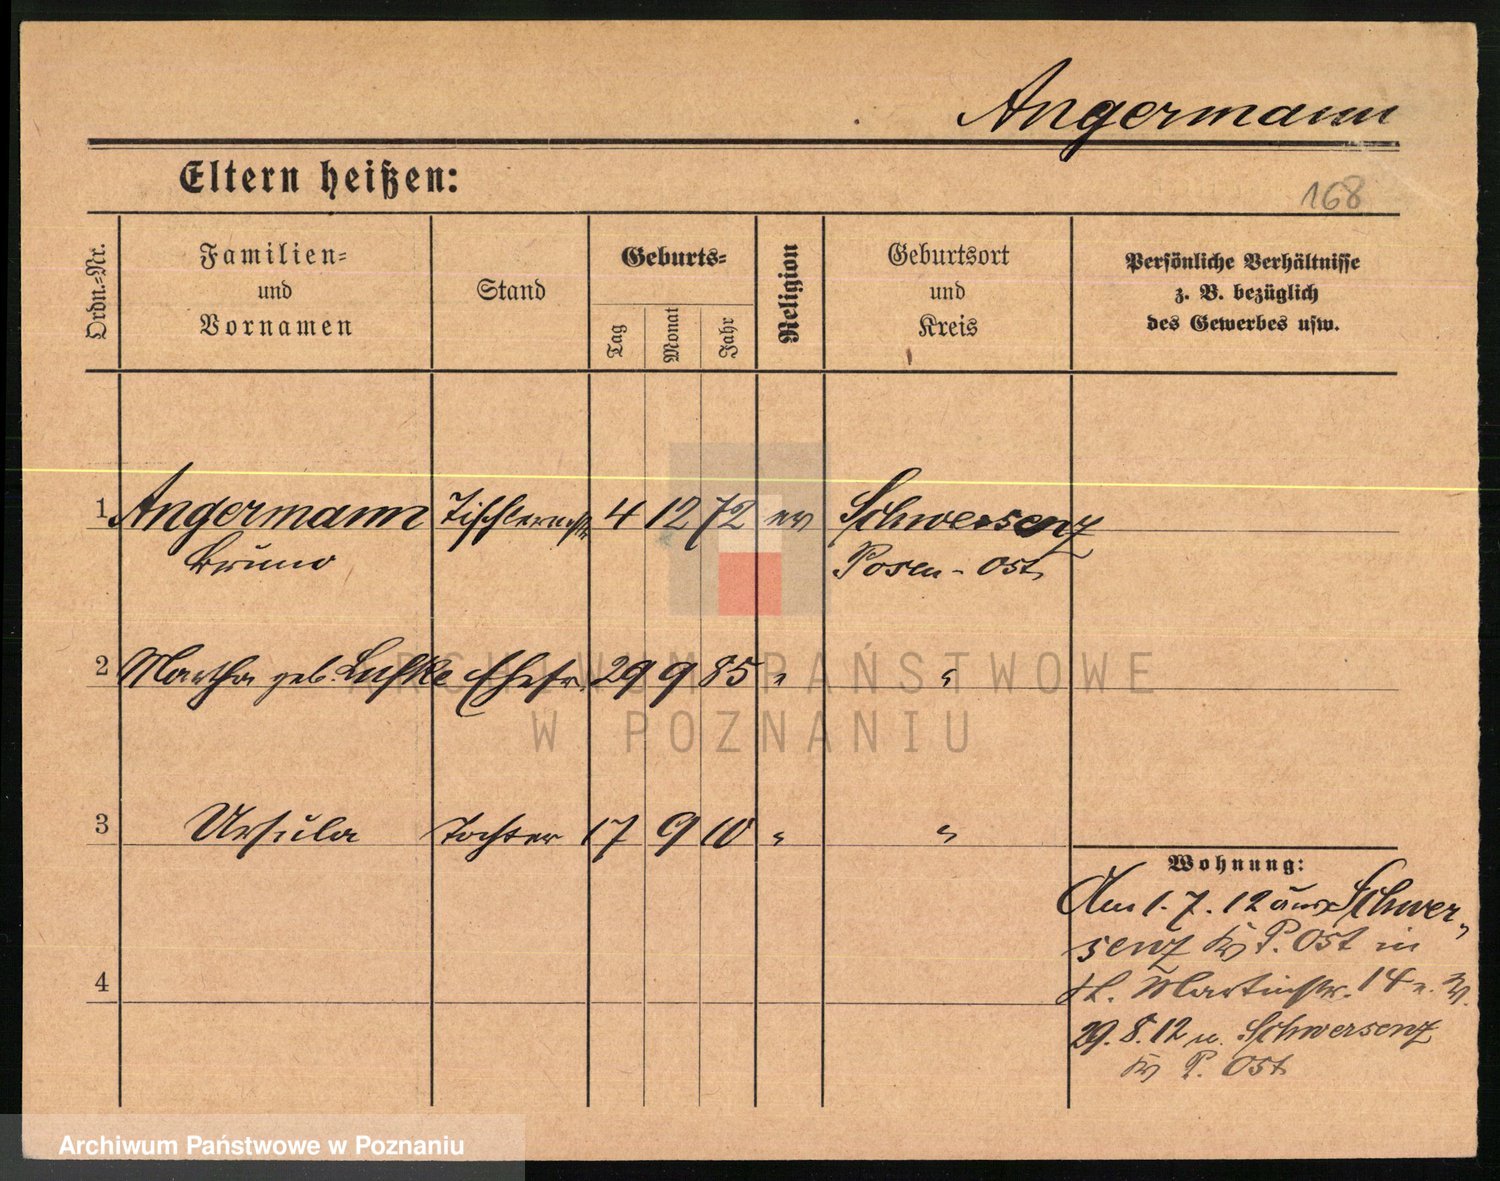 Angermann
Eltern heißen:
168
Ordn.-Nr.
Familien-
und
Vornamen
Stand
Geburts-
Tag
Monat
Jahr
Religion
Geburtsort
und
Kreis
Persönliche Verhältnisse
z. B. bezüglich
des Gewerbes usw.
1 Angermann Tischlermstr 4 12 72 ev Schwersenz
Bruno Posen-Ost
2 Martha geb. Ehefr. 29 9 85 " "
3 Ursula Tochter 17 9 10 " "
4
Wohnung:
Am 1.7.12 aus Schwer-
senz Kr P. Ost in
St. Martinstr. 14
29.8.12 n. Schwersenz
Kr P. Ost
ARCHIWUM PAŃSTWOWE
W POZNANIU
Archiwum Państwowe w Poznaniu